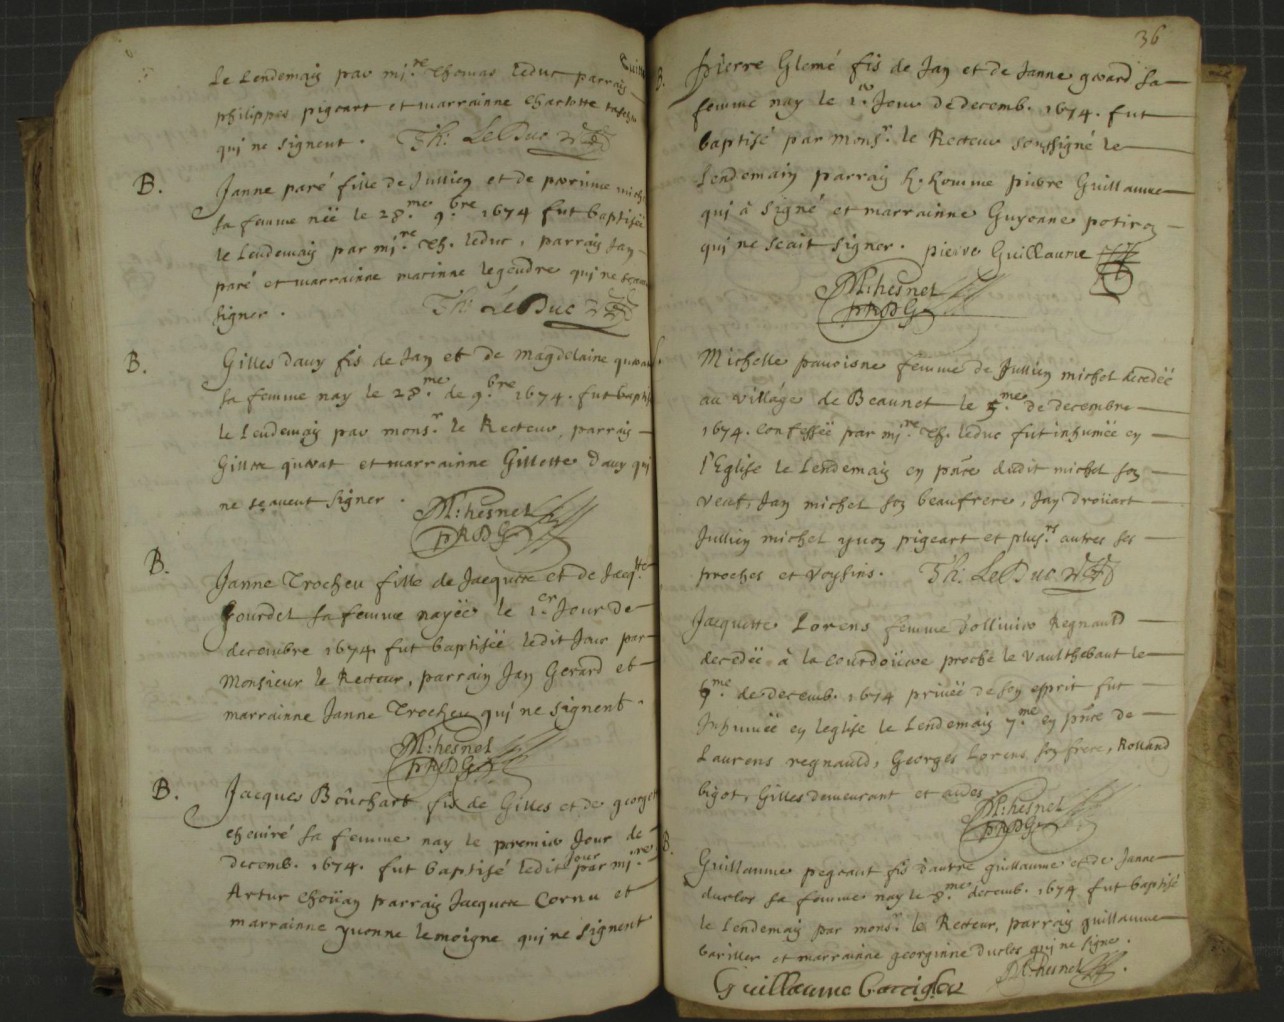 Le Lendemain par mi.re Thomas Leduc parrain
philippes pigeart et marrainne Charlotte
qui ne signent. Th: LeDuc
B. Janne paré fille de Jullien et de perrinne
sa femme néë le 28.me 9.bre 1674 fut baptiséë
le Lendemain par mi.re Th. leduc, parrain Jan
paré et marrainne legendre qui ne
signer. Th: LeDuc
B. Gilles dauy fis de Jan et de Magdelaine
sa femme nay le 28.me de 9.bre 1674. fut
le Lendemain par mons.r le Recteur, parrain
Gilles et marrainne Gillette dauy qui
ne sçavent signer.
M: hesnel
pRDG
B. Janne Trocheu fille de Jacques et de Jacq.tte
Gourdel sa femme nayëe le 1.er Jour de
decembre 1674. fut baptiséë ledit Jour par
Monsieur le Recteur, parrain Jan Gerard et
marrainne Janne Trocheu qui ne signent.
M: hesnel
pRDG
B. Jacques Boûchart fis de Gilles et de
cheuiré sa femme nay le premier Jour de
decemb. 1674. fut baptisé ledit Jour par mi.re
Artur Choüan parrain Jacques Cornu et
marrainne yvonne lemoigne qui ne signent
36
B. pierre Glemé fis de Jan et de Janne sa
femme nay le 1.er Jour de decemb. 1674. fut
baptisé par mons.r le Recteur soussigné le
Lendemain parrain h. homme pierre Guillaume
qui a signé et marrainne Guyonne potiron
qui ne scait signer. pierre Guillaume
M: hesnel
pRDG
Michelle femme de Jullien michel decedéë
au village de Beaunet le 5.me de decembre
1674. confesséë par mi.re Th. leduc fut inhuméë en
l'Eglise le Lendemain en pñce dudit michel son
veuf, Jan michel son beaufrere, Jan Droüart
Jullien michel yvon pigeart et plus.rs autres ses
proches et voysins. Th: LeDuc
Jacquette Lorens femme dollivier Regnauld
decedéë à la courdoüere proche le vaulthebaut le
6.me de decemb. 1674 priuéë de son esprit fut
Inhuméë en leglise le Lendemain 7.me en pñce de
Laurens regnauld, Georges Lorens son frere, Rolland
bigot, Gilles demeurant et autres
M: hesnel
pRDG
B. Guillaume pegeaut fis dautre guillaume et de Janne
duclos sa femme nay le 8.me decemb. 1674 fut baptisé
le Lendemain par mons.r le Recteur, parrain guillaume
et marrainne georginne duclos qui ne signe.
M: hesnel
Guillaume